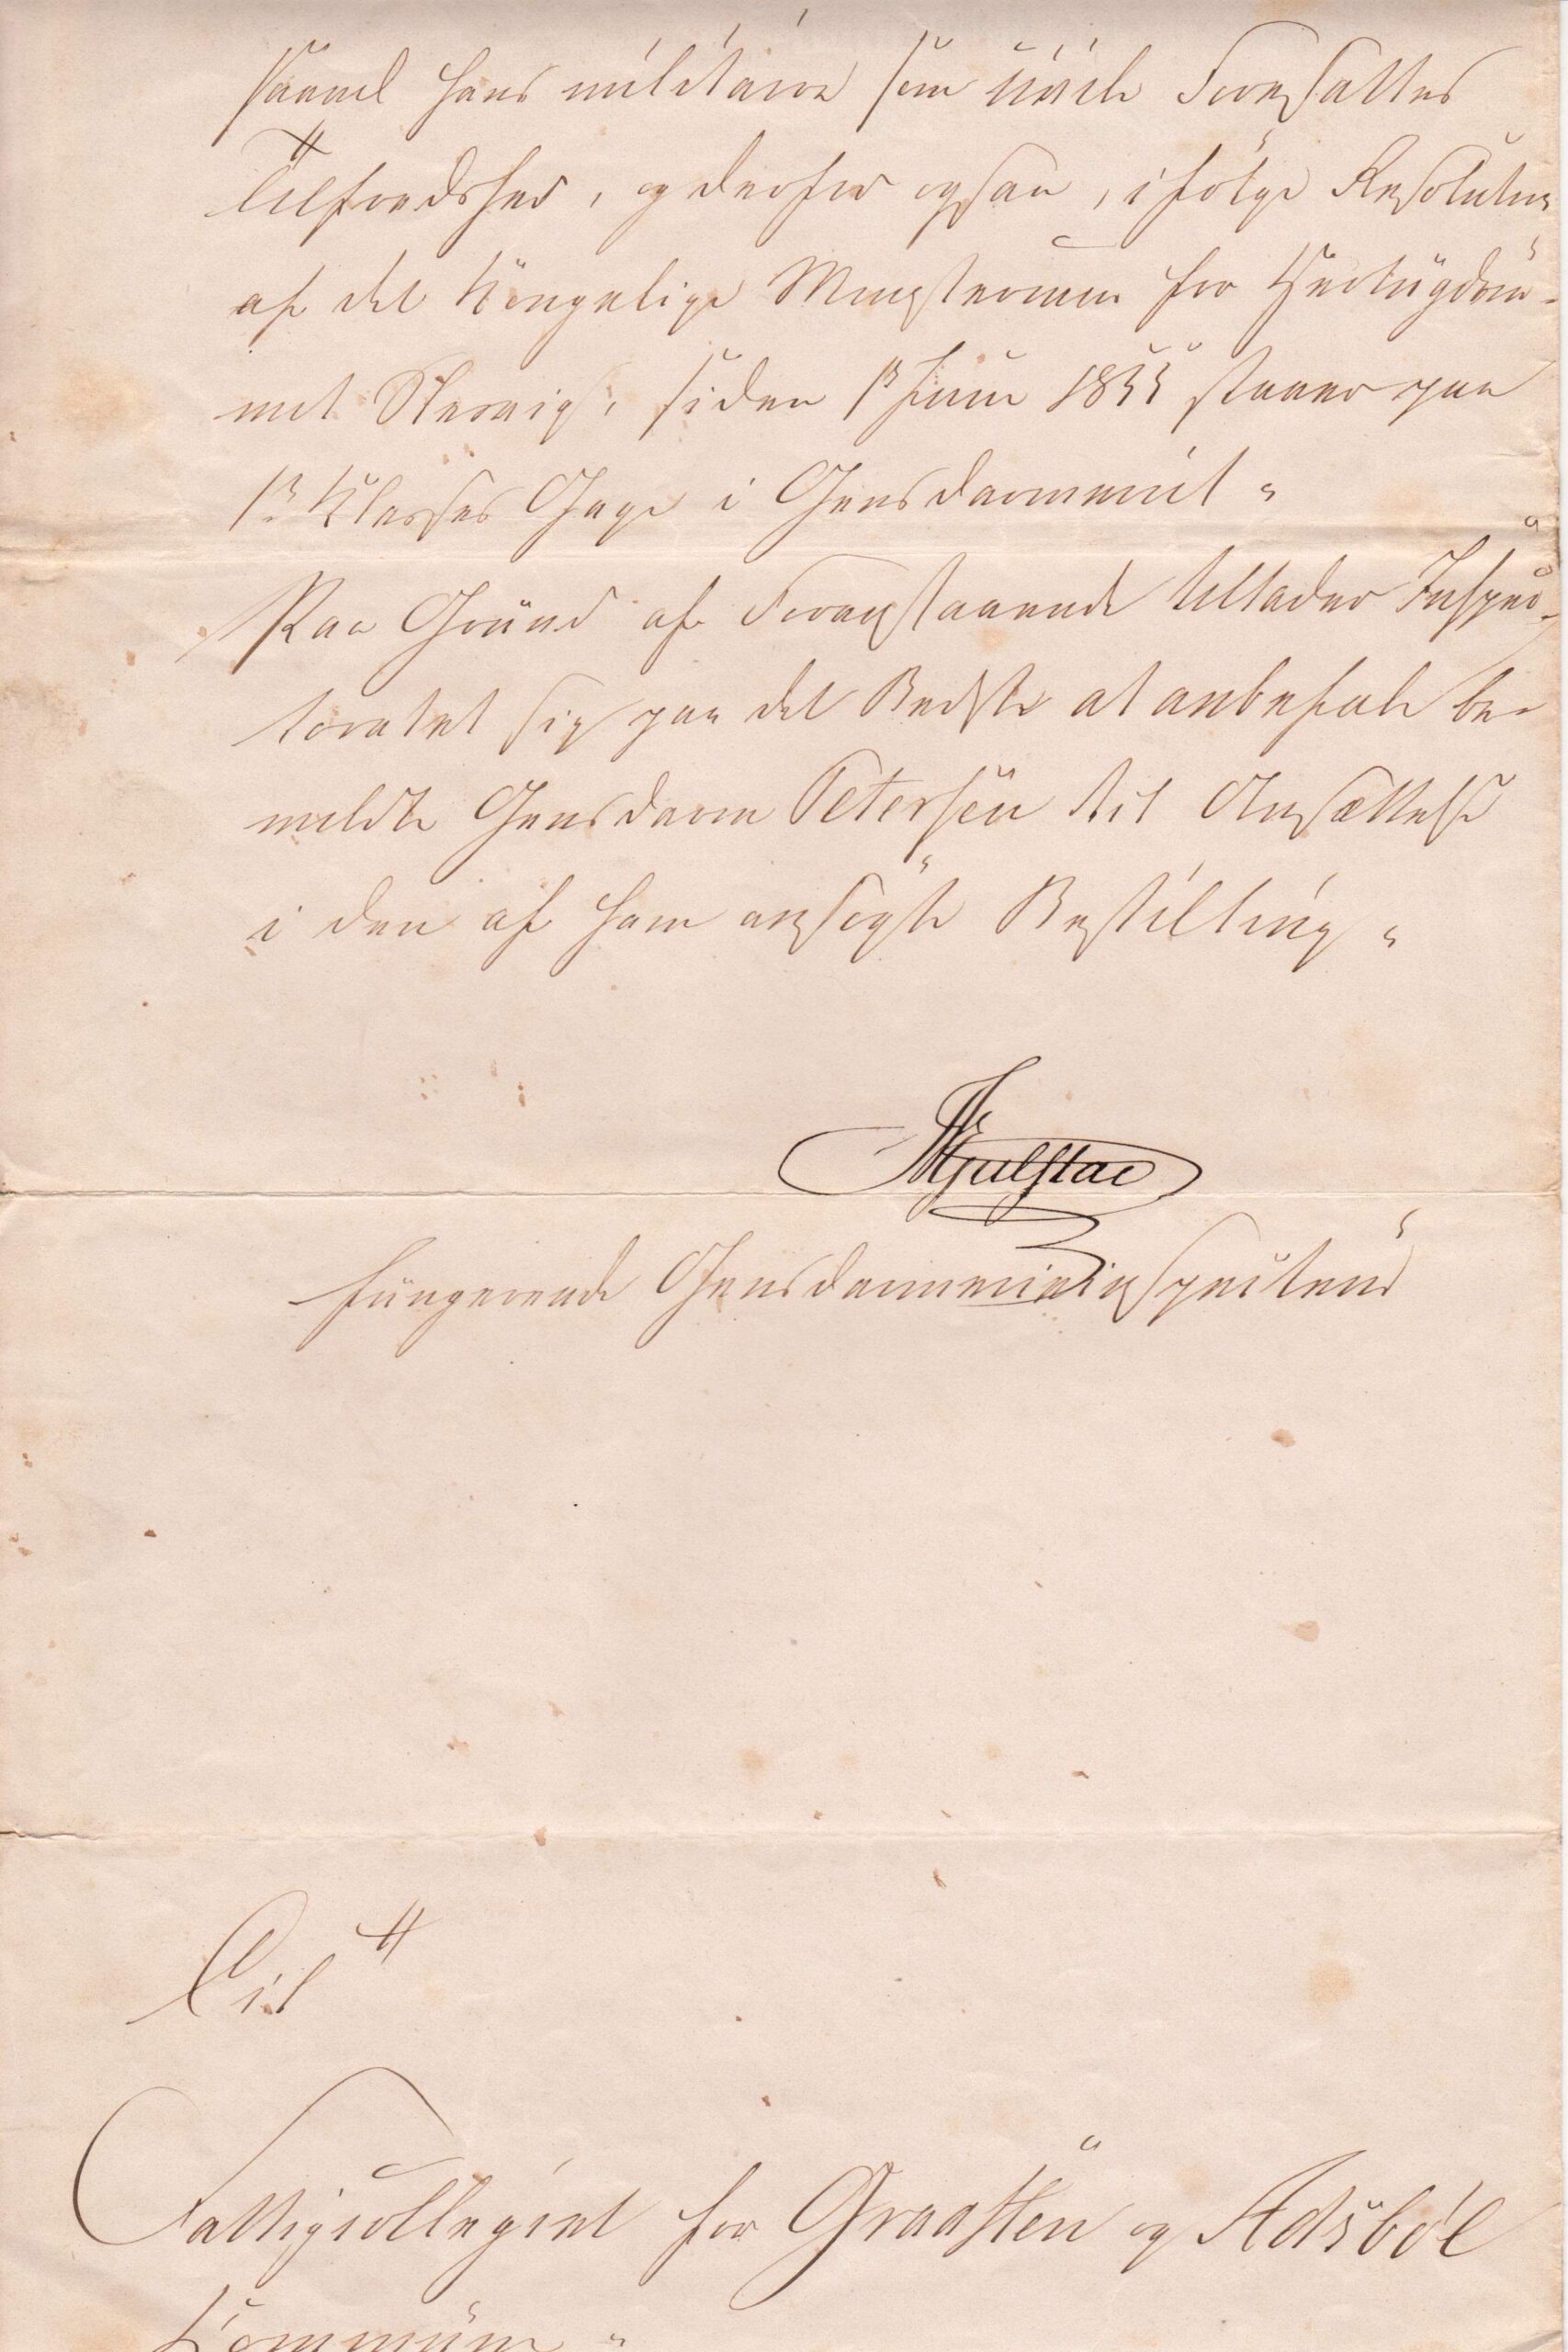 saavel hans militaire som civile Foresattes
Tilfredshed, og derfor ogsaa, ifölge Resolution
af det Kongelige Ministerium for Hertugdöm-
met Slesvig, siden 1ste Juni 1855 staaer paa
1ste Klasses Gage i Gensdarmeriet.
Paa Grund af Foranstaaende tillader Inspec-
toratet sig paa det Bedste at anbefale be-
meldte Gensdarm Petersen til Ansættelse
i den af ham ansögte Bestilling.
fungerende Gensdarmeriinspecteur
Til
Fattigcollegiet for Graasten og Adsböl
Kommune.